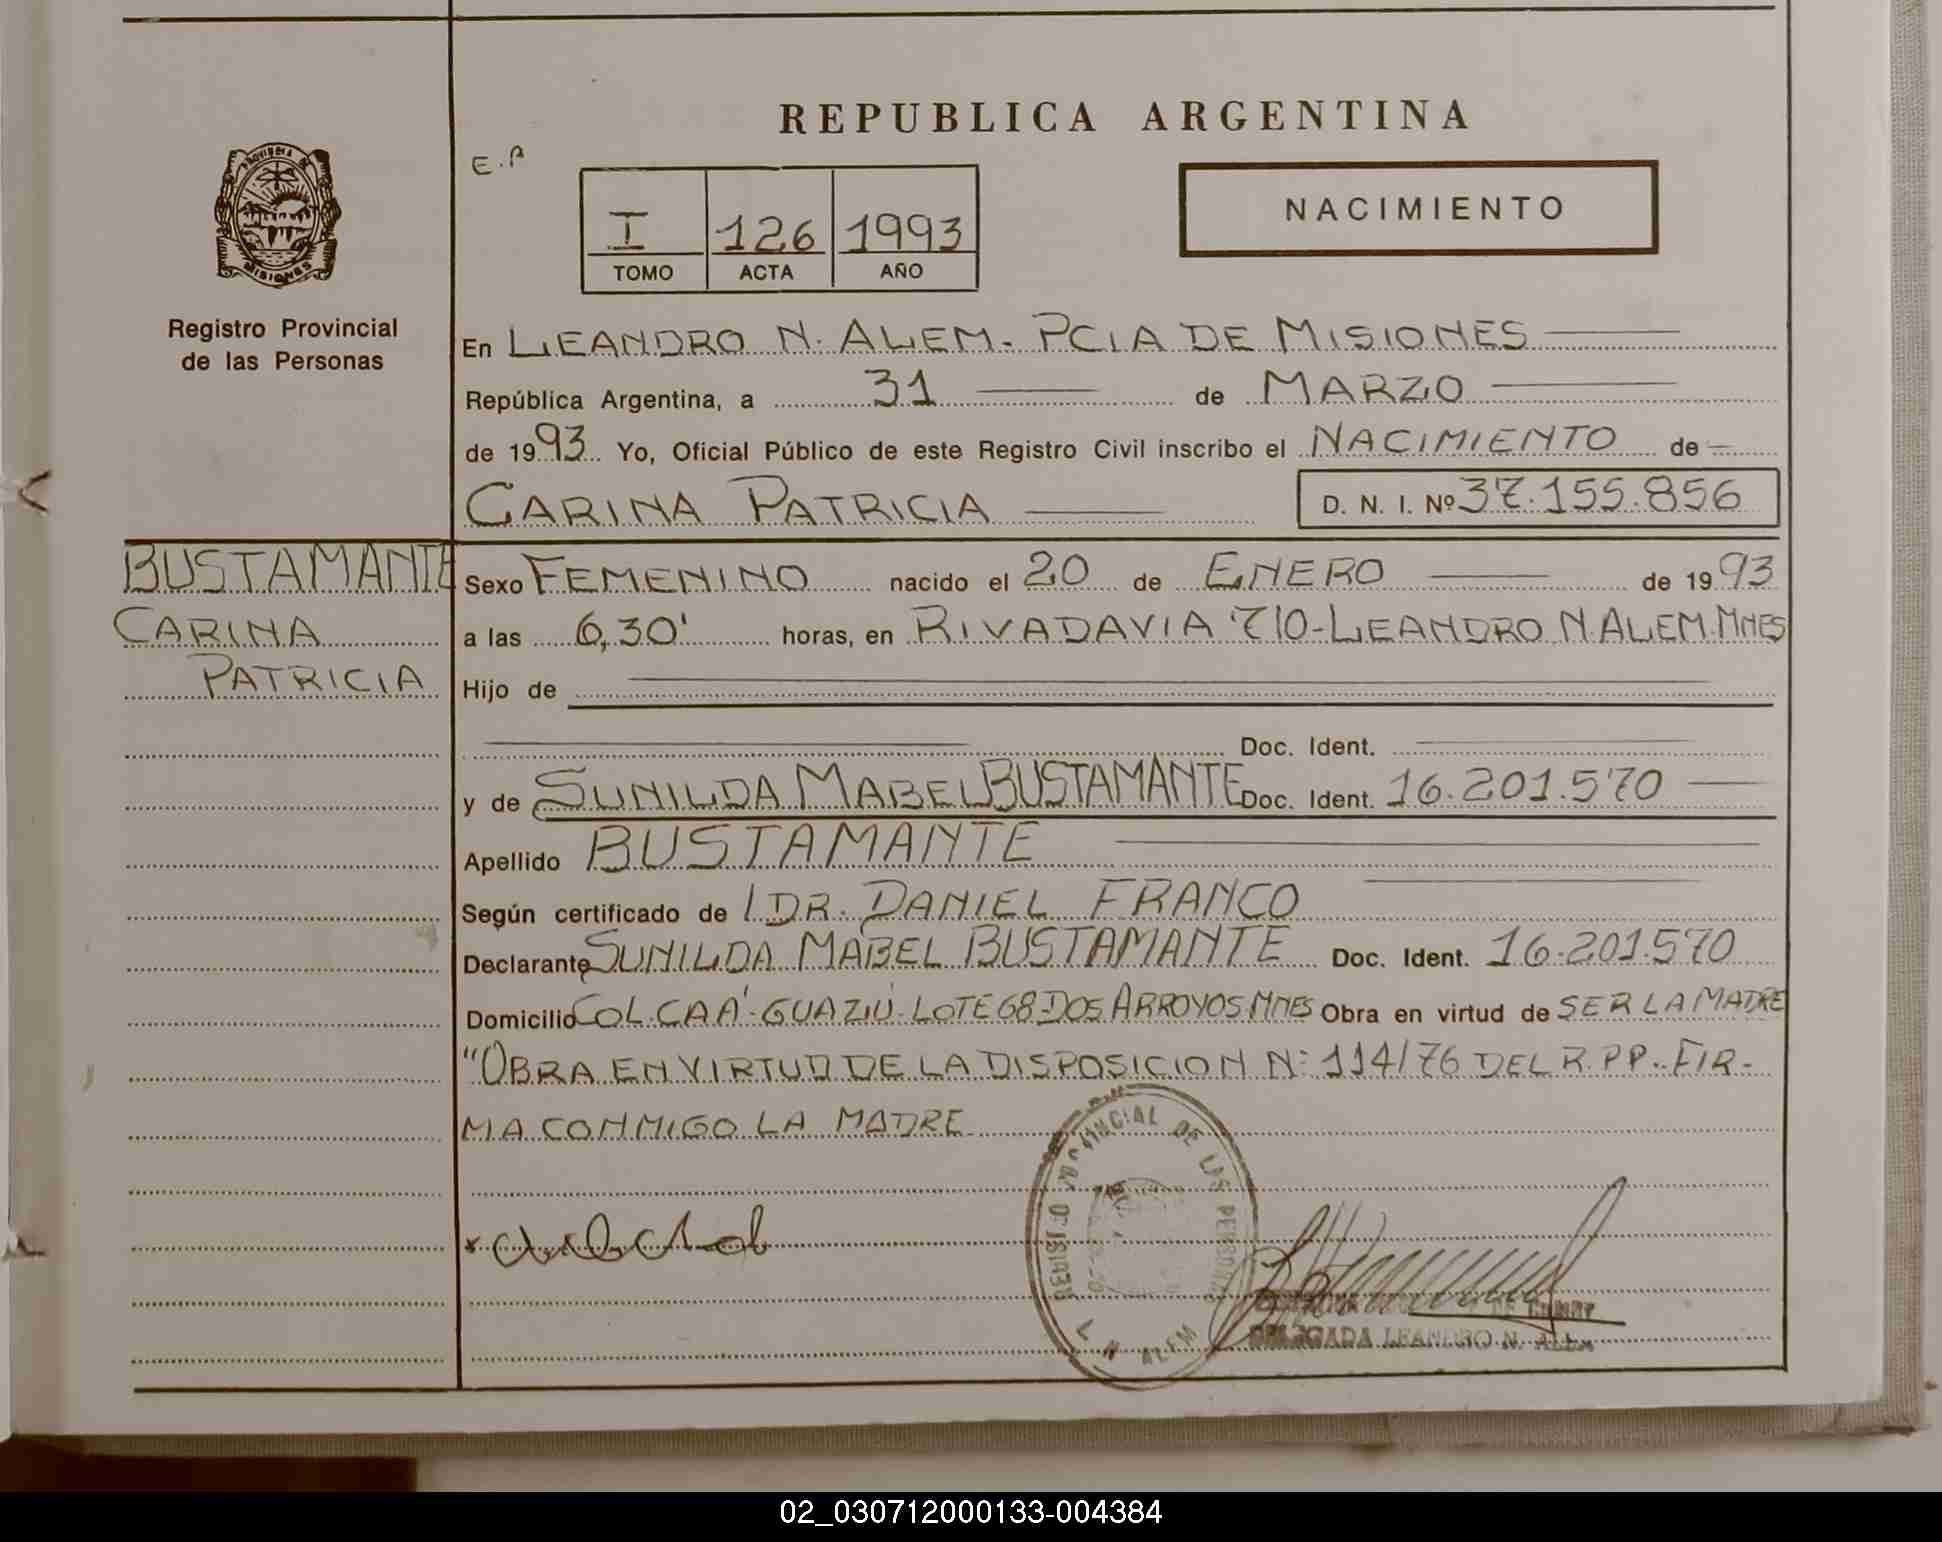 REPUBLICA ARGENTINA
E.P
NACIMIENTO
I 126 1993
TOMO ACTA AÑO
PROVINCIA DE
MISIONES
Registro Provincial
de las Personas
En LEANDRO N. ALEM - PCIA DE MISIONES
República Argentina, a 31 de MARZO
de 1993 Yo, Oficial Público de este Registro Civil inscribo el NACIMIENTO de
CARINA PATRICIA D. N. I. Nº 37.155.856
BUSTAMANTE
CARINA
PATRICIA
Sexo FEMENINO nacido el 20 de ENERO de 1993
a las 6,30' horas, en RIVADAVIA 710 - LEANDRO N. ALEM. MNES
Hijo de
Doc. Ident.
y de SUNILDA MABEL BUSTAMANTE Doc. Ident. 16.201.570
Apellido BUSTAMANTE
Según certificado de 1 DR. DANIEL FRANCO
Declarante SUNILDA MABEL BUSTAMANTE Doc. Ident. 16.201.570
Domicilio COL. CAÁ-GUAZIÚ - LOTE 68 - DOS ARROYOS. MNES Obra en virtud de SER LA MADRE
"OBRA EN VIRTUD DE LA DISPOSICION N: 114/76 DEL R.P.P.. FIR-
MA CONMIGO LA MADRE
PROVINCIAL DE LAS
L. N. ALEM
DELEGADA LEANDRO N. ALEM
02_030712000133-004384